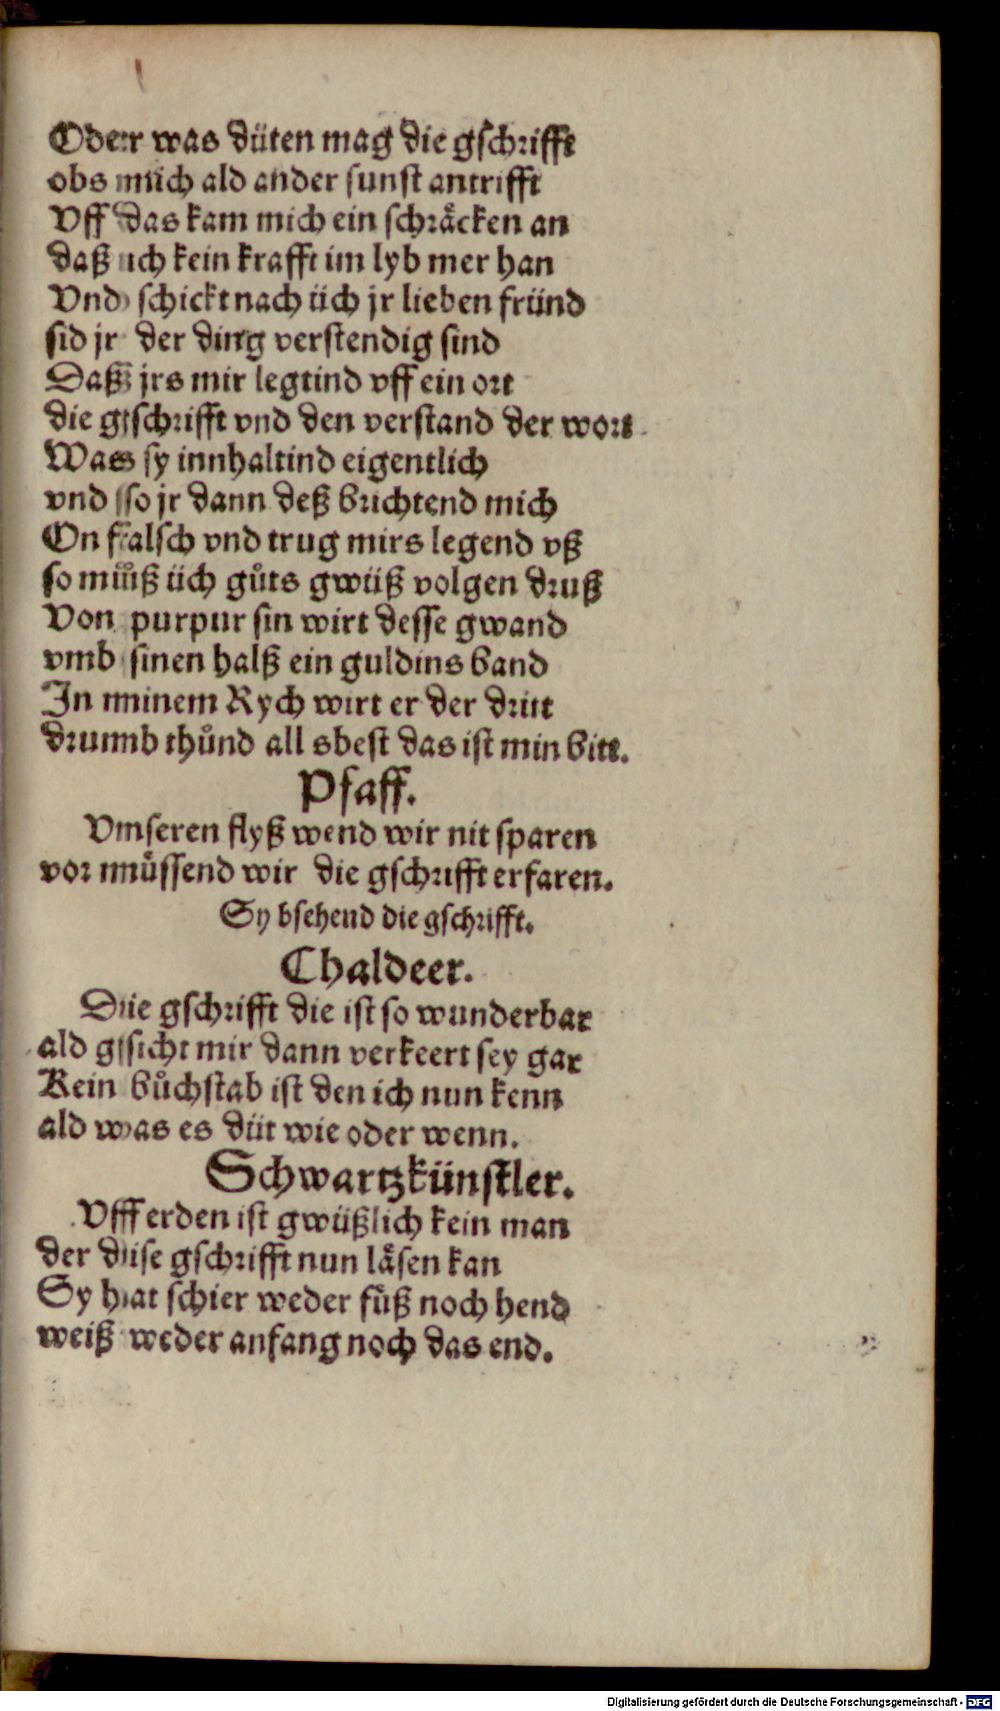 Oder was düten mag die gschrifft
obs mich ald ander sunst antrifft
Vff das kam mich ein schräcken an
daß ich kein krafft im lyb mer han
Vnd schickt nach üch jr lieben fründ
sid jr der ding verstendig sind
Daß jrs mir legtind vff ein ort
die gschrifft vnd den verstand der wort
Was sy innhaltind eigentlich
vnd so jr dann deß brichtend mich
On falsch vnd trug mirs legend vß
so müß üch gůts gwüß volgen druß
Von purpur sin wirt desse gwand
vmb sinen halß ein guldins band
In minem Rych wirt er der dritt
drumb thůnd all sbest das ist min bitt.
Pfaff.
Vnseren flyß wend wir nit sparen
vor müssend wir die gschrifft erfaren.
Sy bsehend die gschrifft.
Chaldeer.
Die gschrifft die ist so wunderbar
ald gsicht mir dann verkeert sey gar
Kein bůchstab ist den ich nun kenn
ald was es düt wie oder wenn.
Schwartzkünstler.
Vff erden ist gwüßlich kein man
der dise gschrifft nun läsen kan
Sy hat schier weder füß noch hend
weiß weder anfang noch das end.
Digitalisierung gefördert durch die Deutsche Forschungsgemeinschaft - DFG